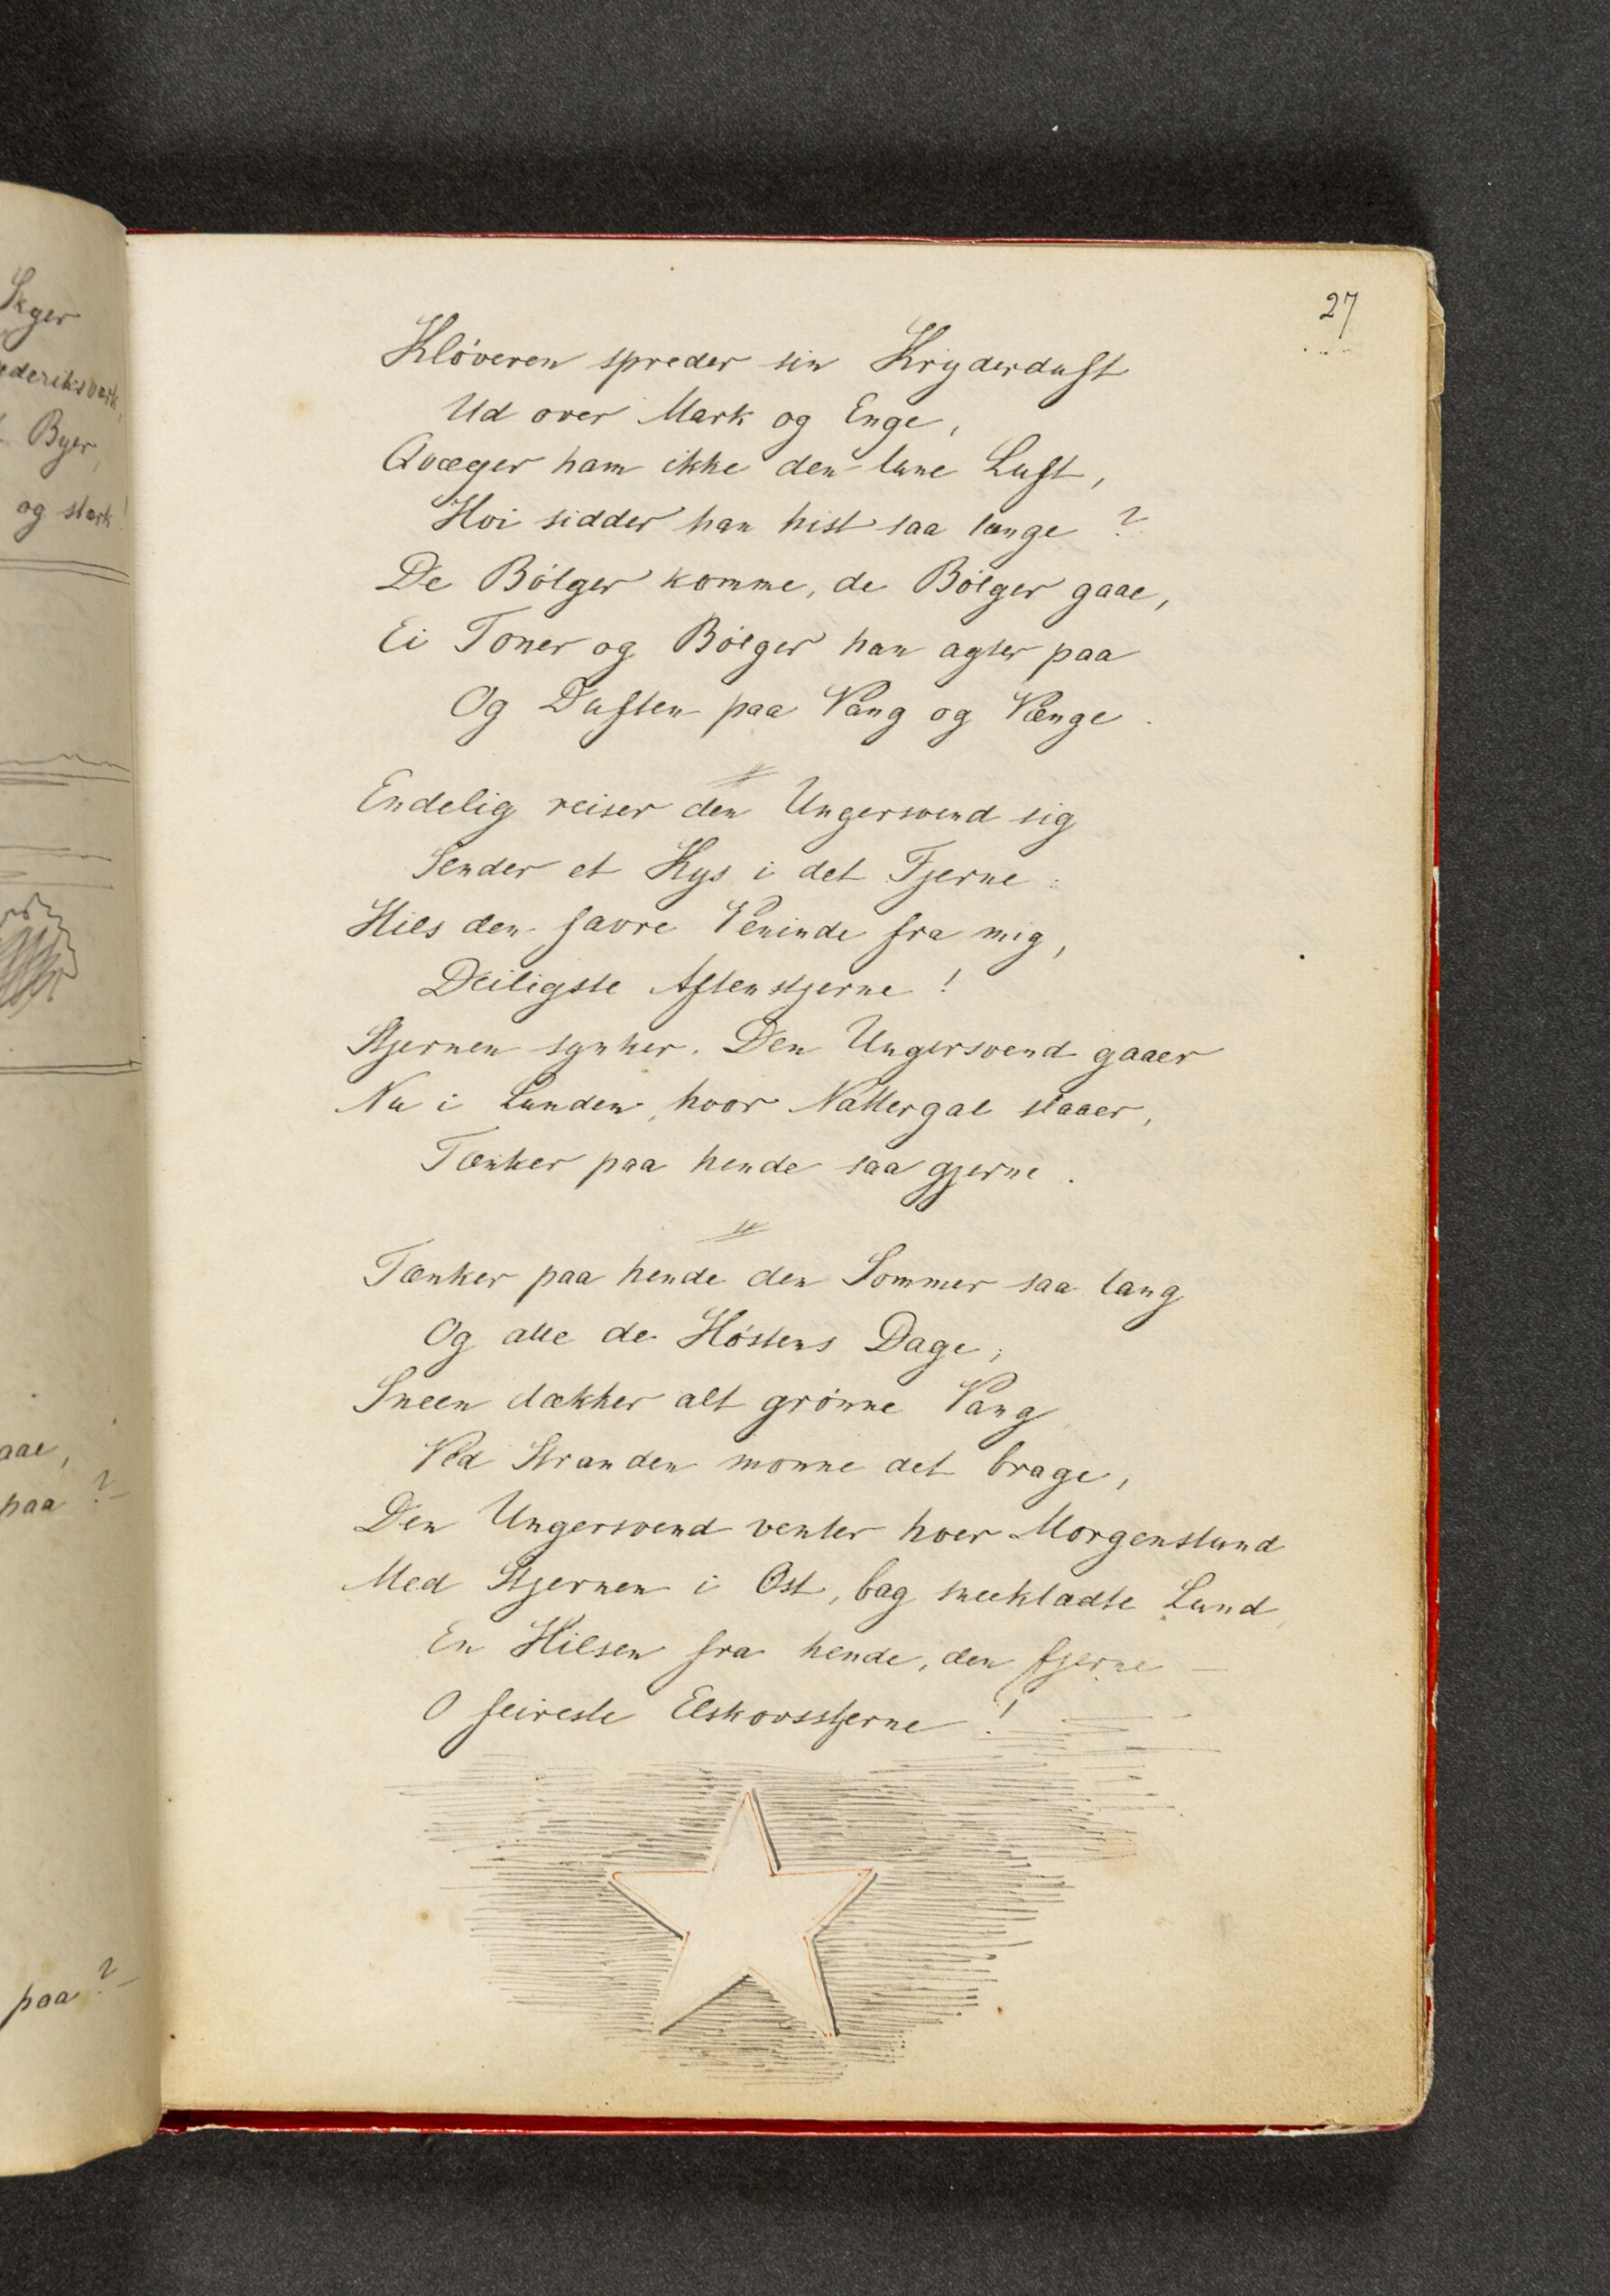 Skyer
ederiksværk,
Byer,
og stærk!
aae,
paa?
paa?
27
Kløveren spreder sin Kryderduft
Ud over Mark og Enge,
Qvæger ham ikke den lune Luft,
Hvi sidder han hist saa længe?
De Bølger komme, de Bølger gaae,
Ei Toner og Bølger han agter paa
Og Duften paa Vang og Vænge.
Endelig reiser den Ungersvend sig
Sender et Kys i det Fjerne:
Hils den favre Veninde fra mig,
Deiligste Aftenstjerne!
Stjernen synker. Den Ungersvend gaaer
Nu i Lunden, hvor Nattergal slaaer,
Tænker paa hende saa gjerne.
Tænker paa hende den Sommer saa lang
Og alle de Høstens Dage;
Sneen dækker alt grønne Vang,
Ved Stranden monne det brage,
Den Ungersvend venter hver Morgenstund
Med Stjernen i Øst, bag sneeklædte Lund,
En Hilsen fra hende, den fjerne —
O feireste Elskovsstjerne!